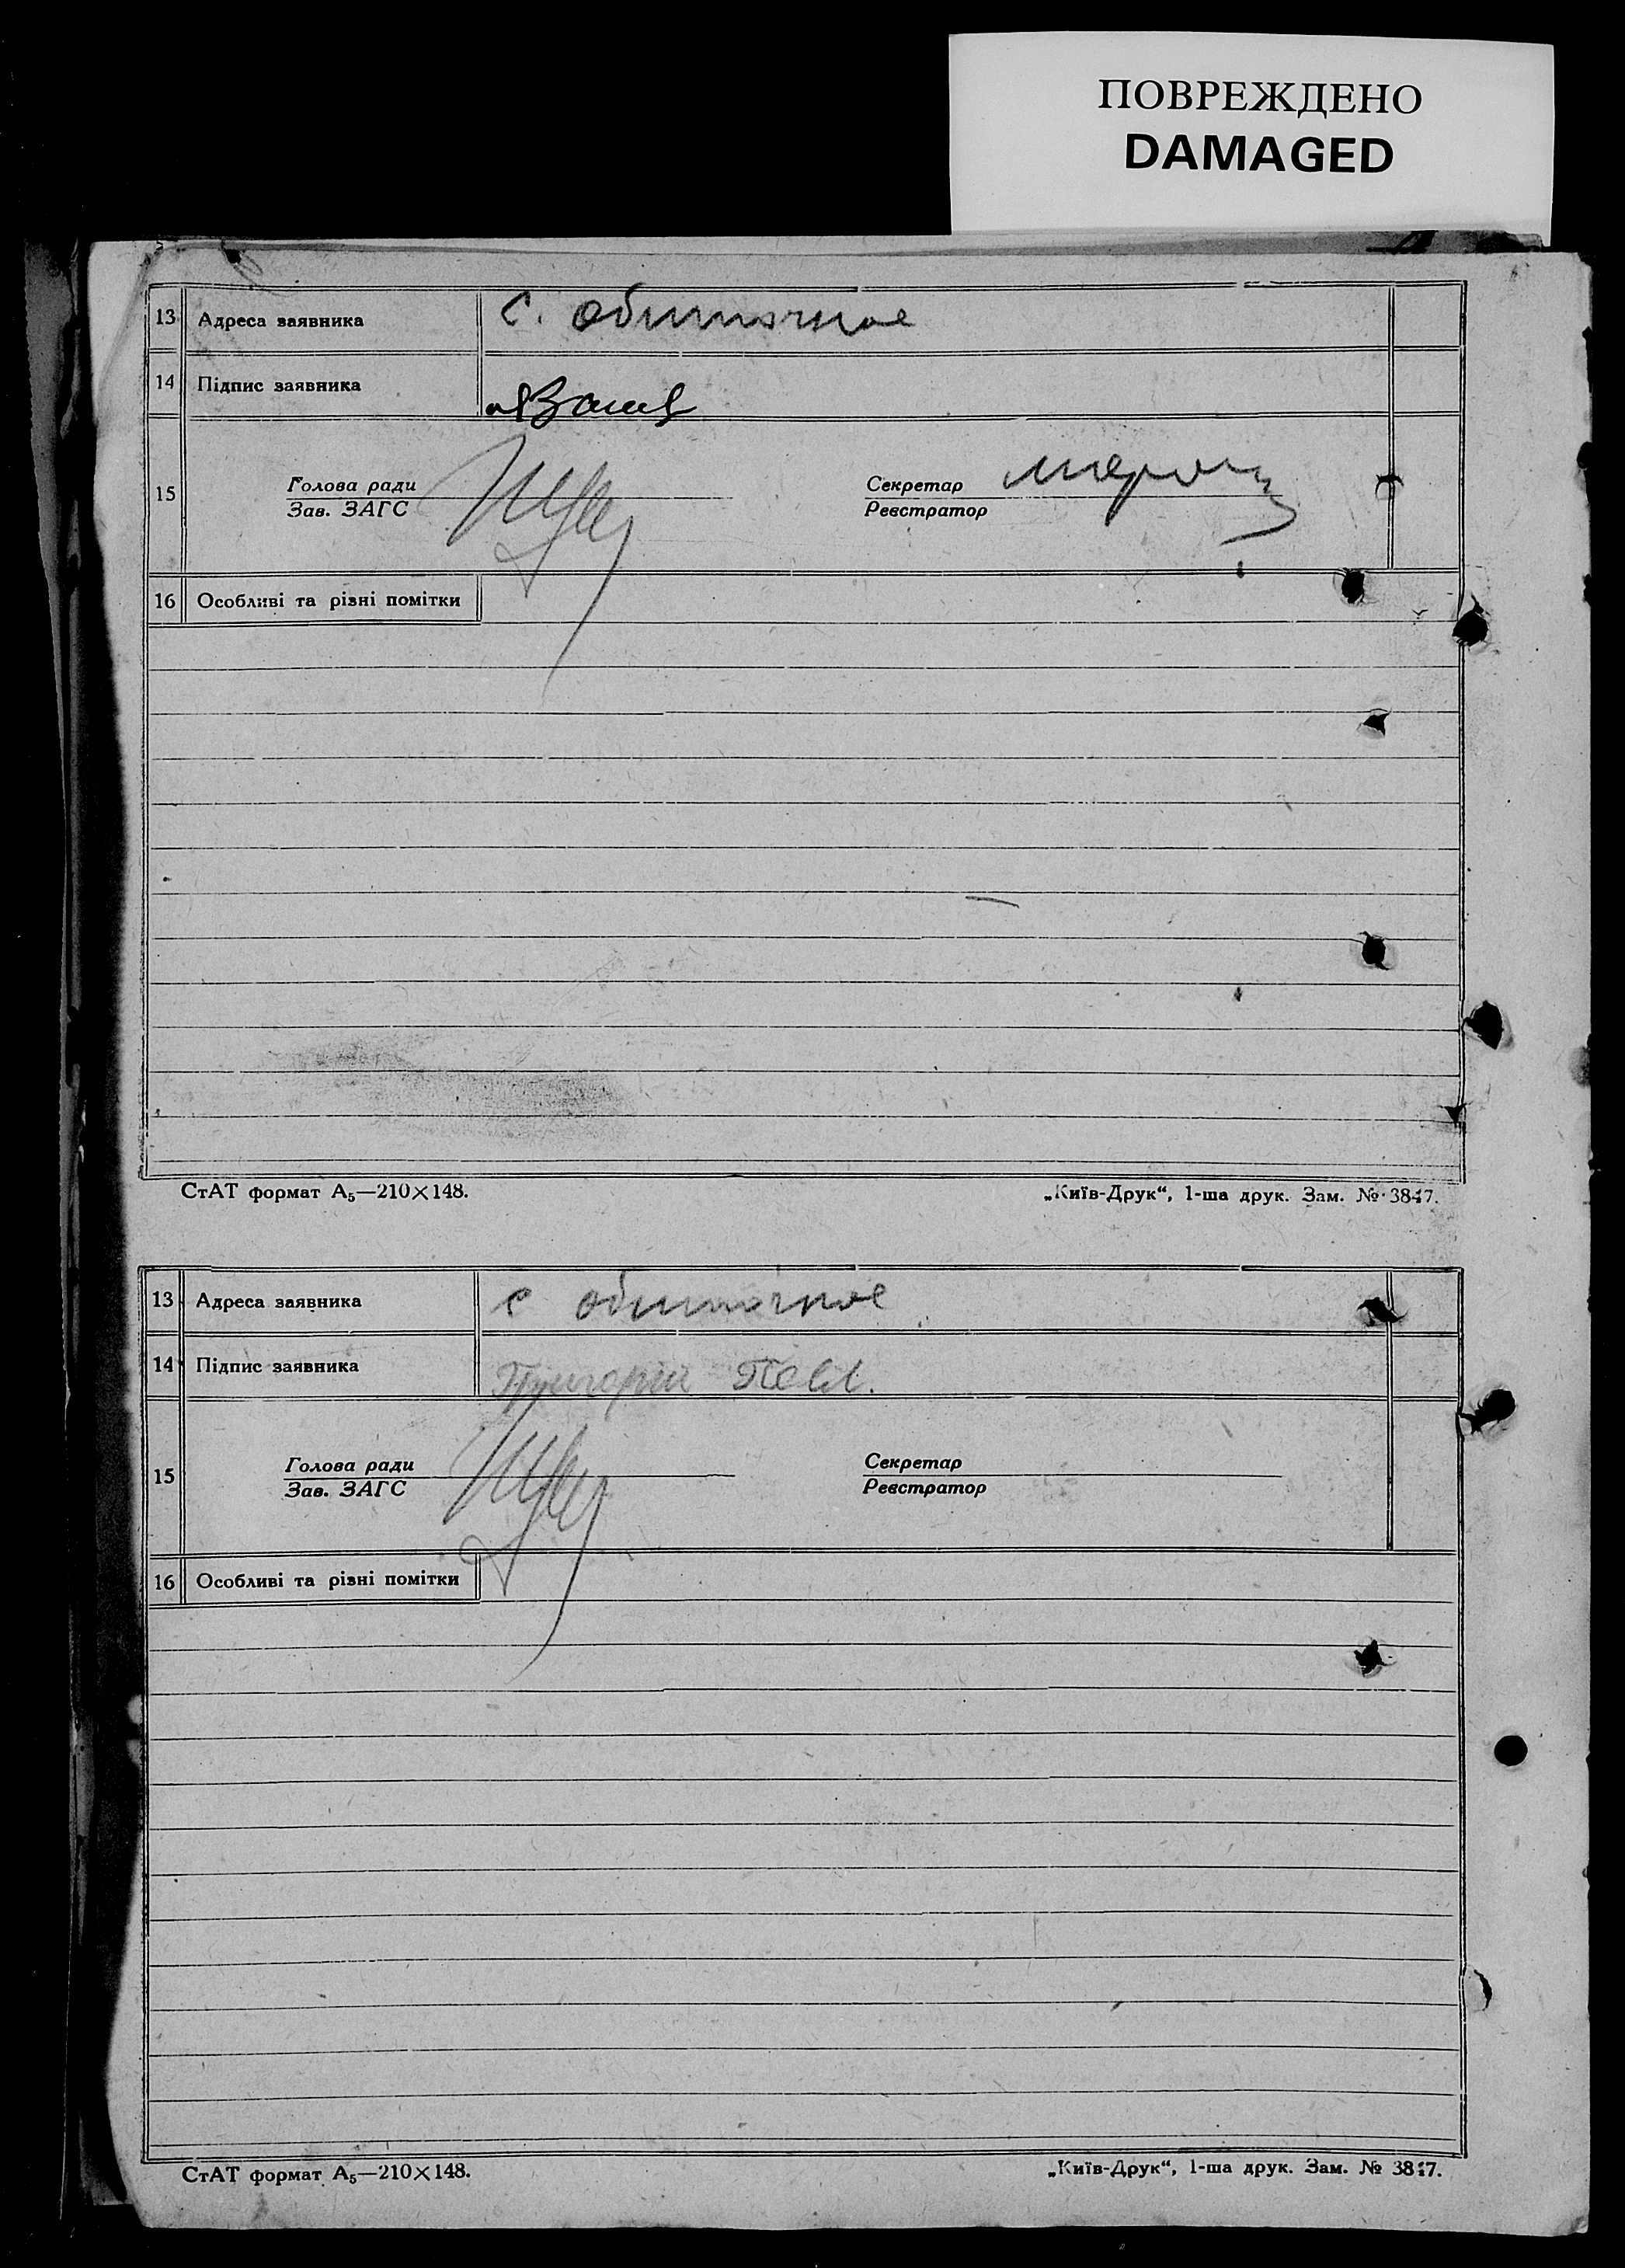 ПОВРЕЖДЕНО
DAMAGED
13 Адреса заявника С. Обиточное
14 Підпис заявника
15 Голова ради
Зав. ЗАГС
Секретар
Реєстратор
16 Особливі та різні помітки
СтАТ формат А₅—210×148. „Київ-Друк“, 1-ша друк. Зам. № 3847.
13 Адреса заявника с Обиточное
14 Підпис заявника Григорий
15 Голова ради
Зав. ЗАГС
Секретар
Реєстратор
16 Особливі та різні помітки
СтАТ формат А₅—210×148. „Київ-Друк“, 1-ша друк. Зам. № 3847.